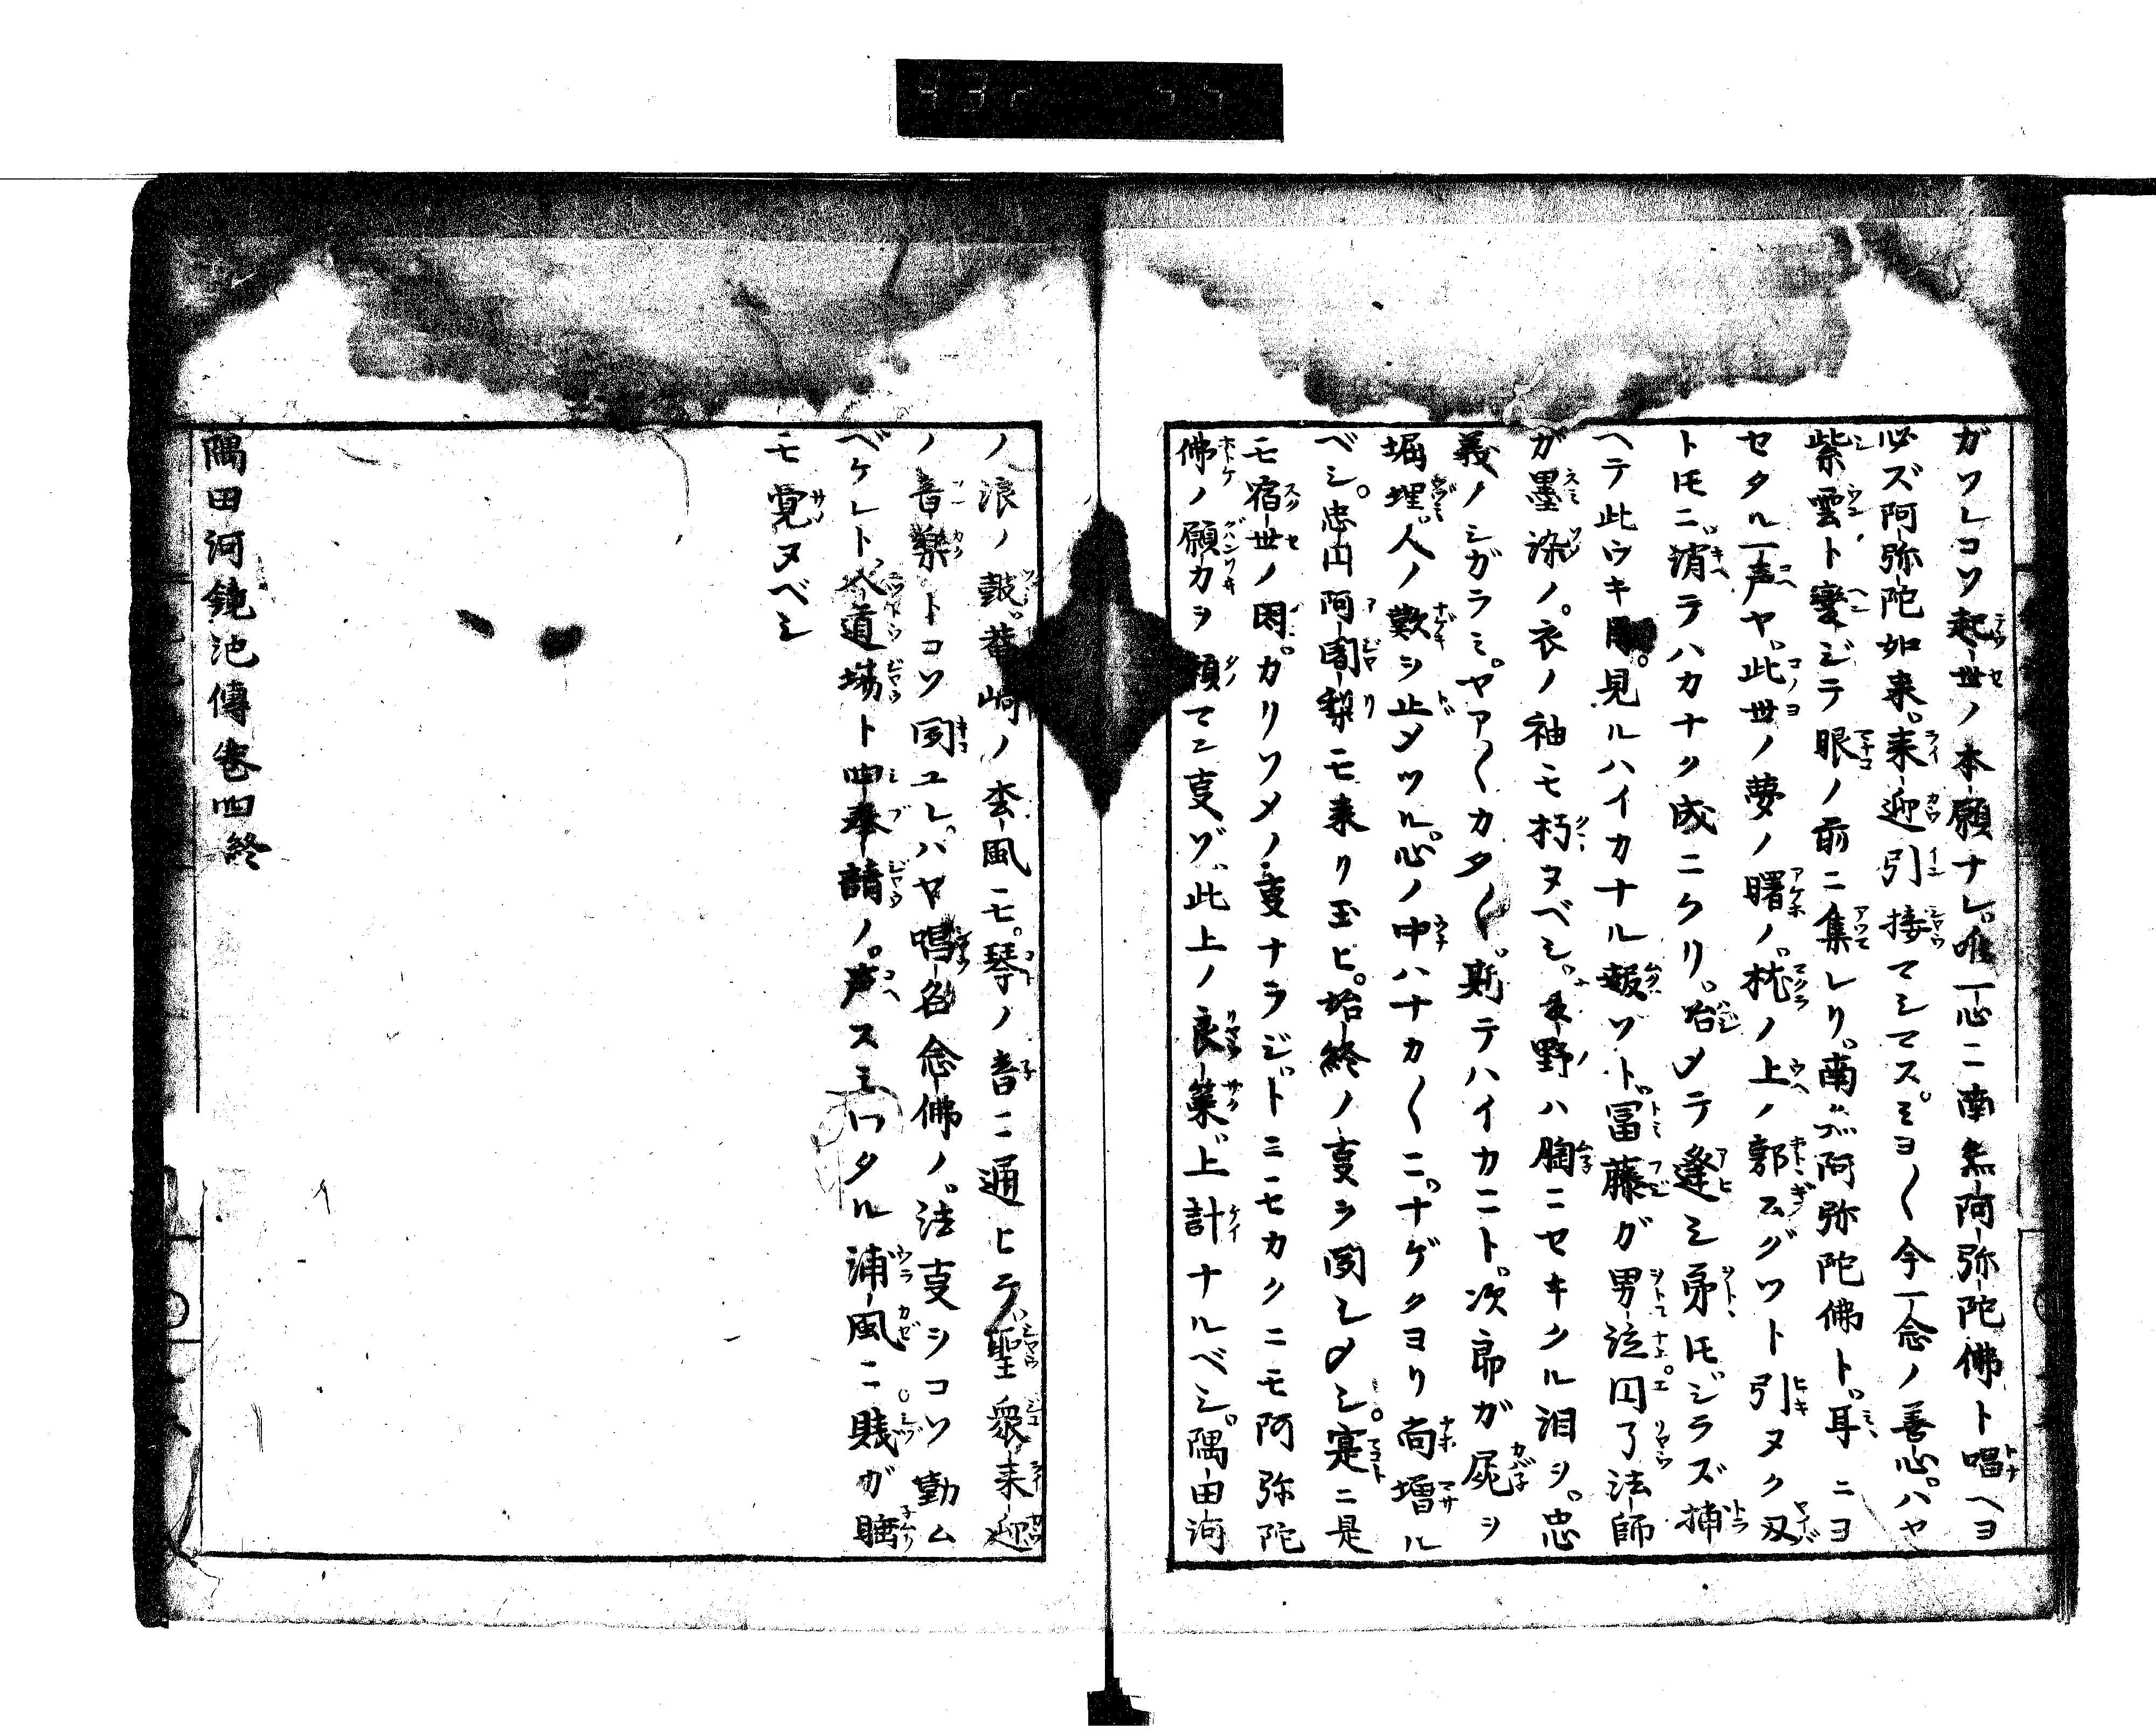 ガソレコソ超世ノ本願ナレ。唯一心ニ南無阿弥陀佛ト唱ヘヨ
必ズ阿弥陀如来。来迎引接マシマス。ミヨ〱今一念ノ善心。ハヤ
紫雲ト變ジテ眼ノ前ニ集レリ。南無阿弥陀佛ト。耳ニヨ
セタル一声ヤ。此世ノ夢ノ曙ノ。枕ノ上ノ郭公グツト引ヌク刄
ト𪜈ニ。消テハカナク成ニケリ。始メテ逢シ弟𪜈ジラズ捕
ヘテ此ウキ目。見ルハイカナル報ゾト。冨藤ガ男泣円了法師
ガ墨染ノ。衣ノ袖モ朽ヌベシ。野ハ胸ニセキクル泪ヲ。忠
義ノシガラミ。ヤア〱カタ〱。斯テハイカニト。次郎ガ屍ヲ
堀埋。人ノ歎ヲ止メツル。心ノ中ハナカ〱ニ。ナゲクヨリ尚増ル
ベシ。忠円阿闍梨モ来リ玉ヒ。始終ノ叓ヲ聞シメシ。寔ニ是
モ宿世ノ因。カリソメノ叓ナラジ。トニモカクニモ阿弥陀
佛ノ願力ヲ頼マン叓ゾ。此上ノ良策。上計ナルベシ。隅田河
ノ浪ノ鼓。菴崎ノ枩風モ。琴ノ音ニ通ヒテ。聖衆来迎
ノ音樂トコソ聞ユレ。ハヤ唱名念佛ノ。法叓ヲコソ勤ム
ベケレト。入道場ト四奉請ノ。声スミワタル浦風ニ賎ガ睡
モ覚ヌベシ
隅田河鏡池傳巻四終